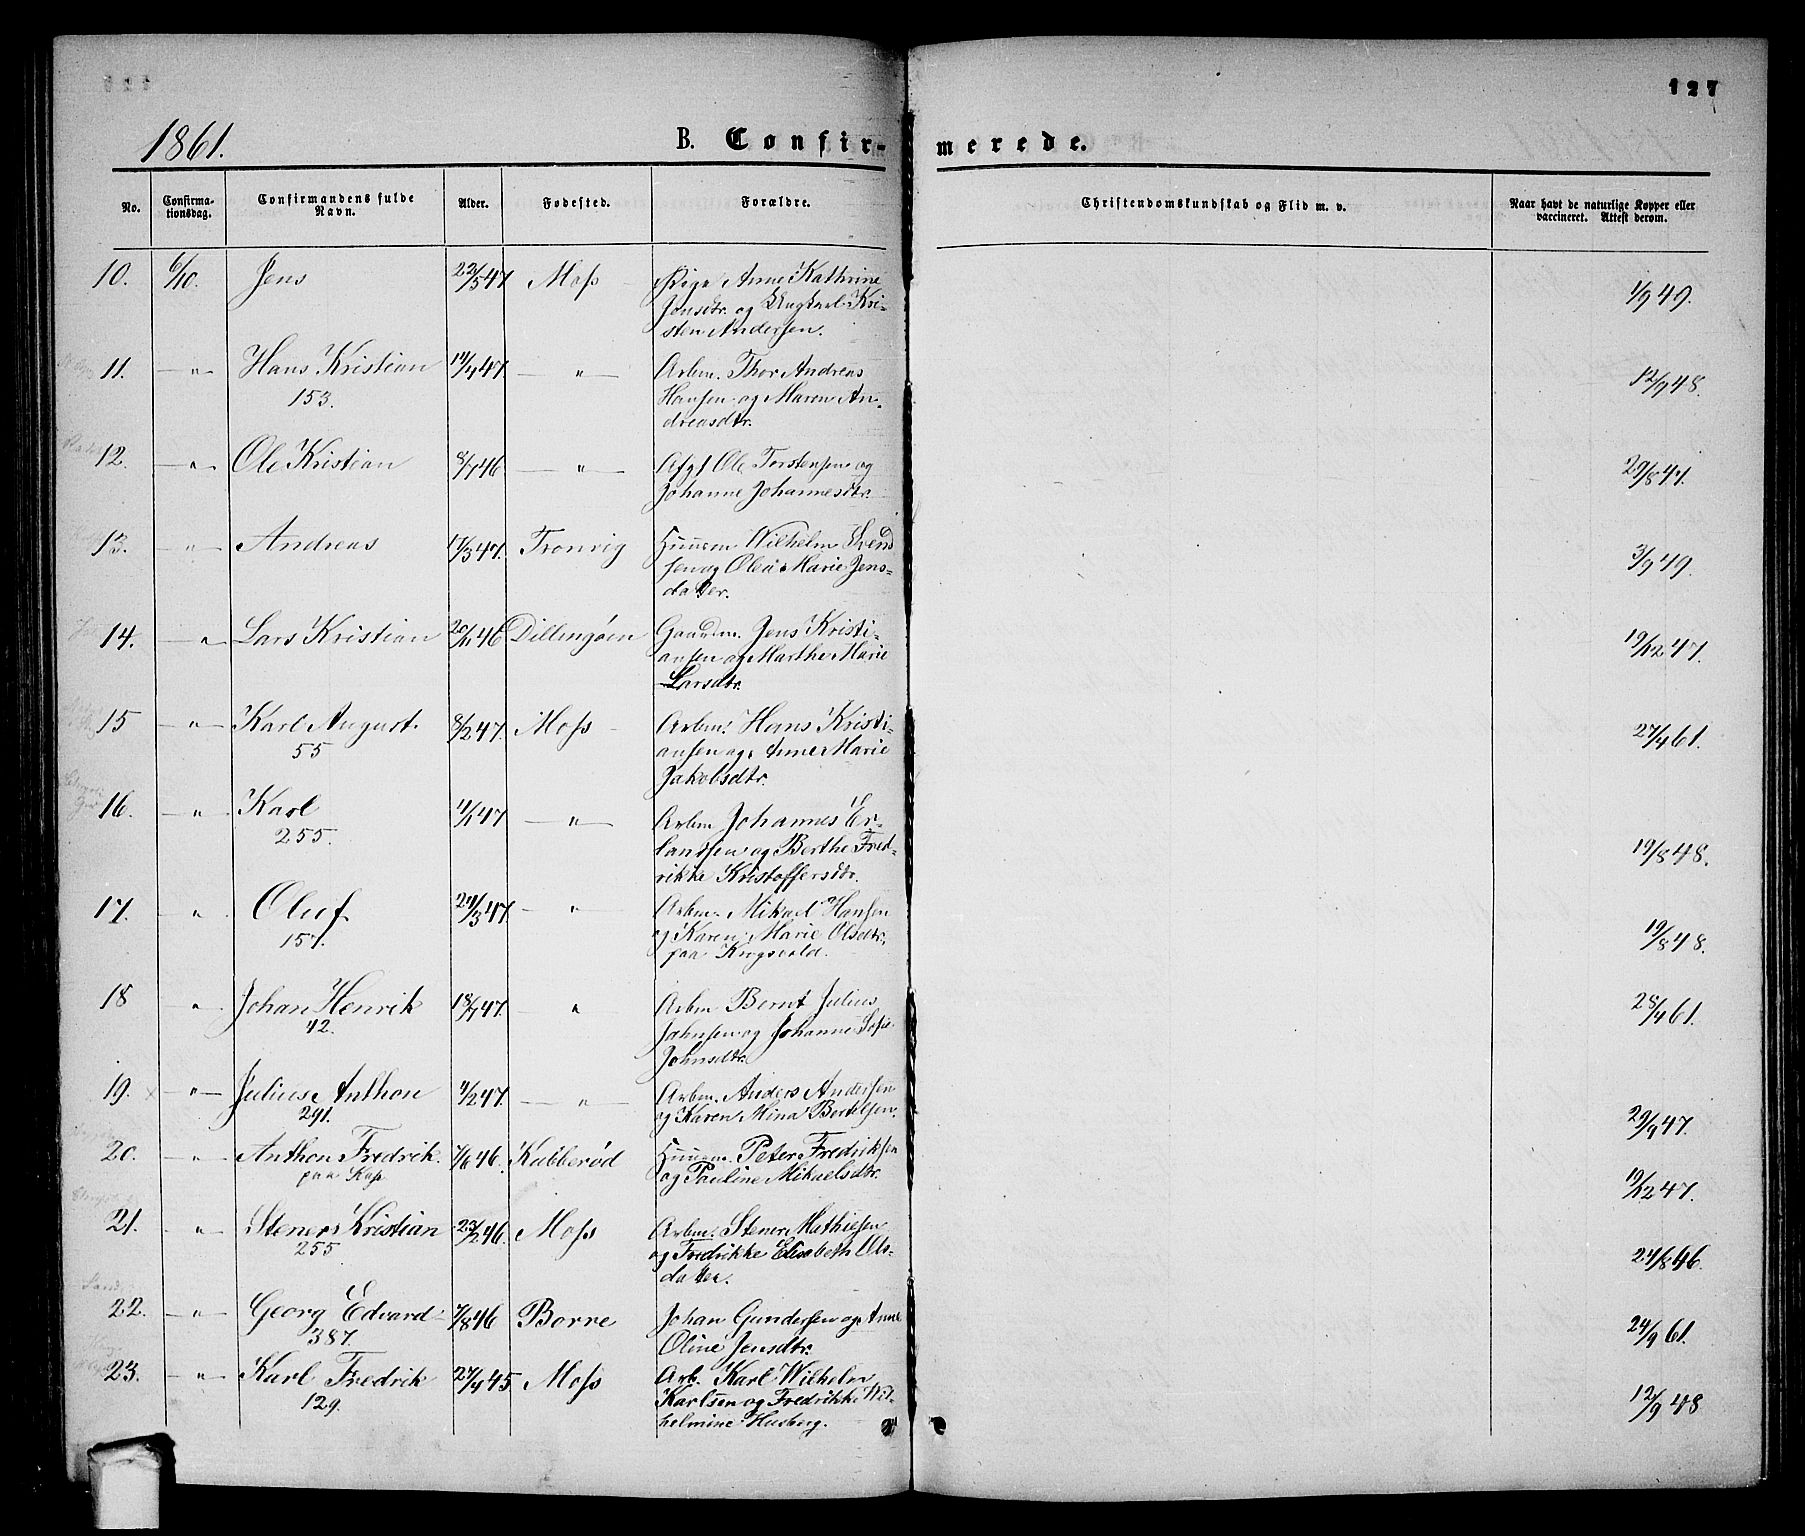 127
1861.
B. Confirmerede.
No.
Confirmationsdag.
Confirmandens fulde Navn.
Alder.
Fødested.
Forældre.
Christendomskundskab og Flid m. v.
Naar havt de naturlige Kopper eller vaccineret. Attest derom.
10. 6/10. Jens 22/5 47 Moss Pige Anne Kathrine
Jensdtr. og Ungkarl Kri-
sten Andersen. 1/9 49.
11. — " — Hans Kristian 14/4 47. — " — Arbm. Thor Andreas
153. Hansen og Maren An-
dreasdtr. 12/9 48.
12. — " — Ole Kristian 8/7 46 — " — Afgt. Ole Torstensen og
Johanne Johannesdtr. 29/8 47.
13. " Andreas 17/3 47. Tronvig Huusm Wilhelm Svend
sen og Olea Marie Jens-
datter. 3/9 49.
14. — " Lars Kristian 20/11 46 Dillingøen Gaardm. Jens Kristi-
ansen og Marthe Marie
Larsdtr. 19/12 47.
15 — " — Karl August. 8/2 47. Moss Arbm. Hans Kristi-
55 ansen og Anne Marie
Jakobsdtr. 27/4 61.
16. — " — Karl 4/1 47 — " — Arbm Johannes Er-
255. landsen og Berthe Fred-
rikke Kristoffersdtr. 19/8 48.
17. " Oluf 24/3 47. — " — Arbm. Mikael Hansen
157. og Karen Marie Olsdtr.
paa Krogsvold. 19/8 48.
18 " Johan Henrik 18/7 47. " Arbm Bernt Julius
42. Jahnsen og Johanne Sofie
Johnsdtr. 28/4 61.
19. — " — Julius Anthon 4/2 47. — " — Arbm. Anders Andersen
291. og Karen Mina Bertelsen. 29/9 47.
20. — " — Anthon Fredrik. 7/6 46. Kubberød Huusm. Peter Fredriksen
paa og Pauline Mikaelsdtr. 19/12 47.
21. — " Stener Kristian 23/2 46. Moss Arbm. Stener Mathiesen
255 og Fredrikke Elisabeth Ols-
datter. 24/8 46.
22. — " — Georg Edvard 7/8 46 Borre Johan Gundersen og Anne
387. Oline Jensdtr. 24/9 61.
23. — " — Karl Fredrik 27/4 45 Moss Arb. Karl Wilhelm
129. Karlsen og Fredrikke Wil-
helmine Husberg. 12/9 48